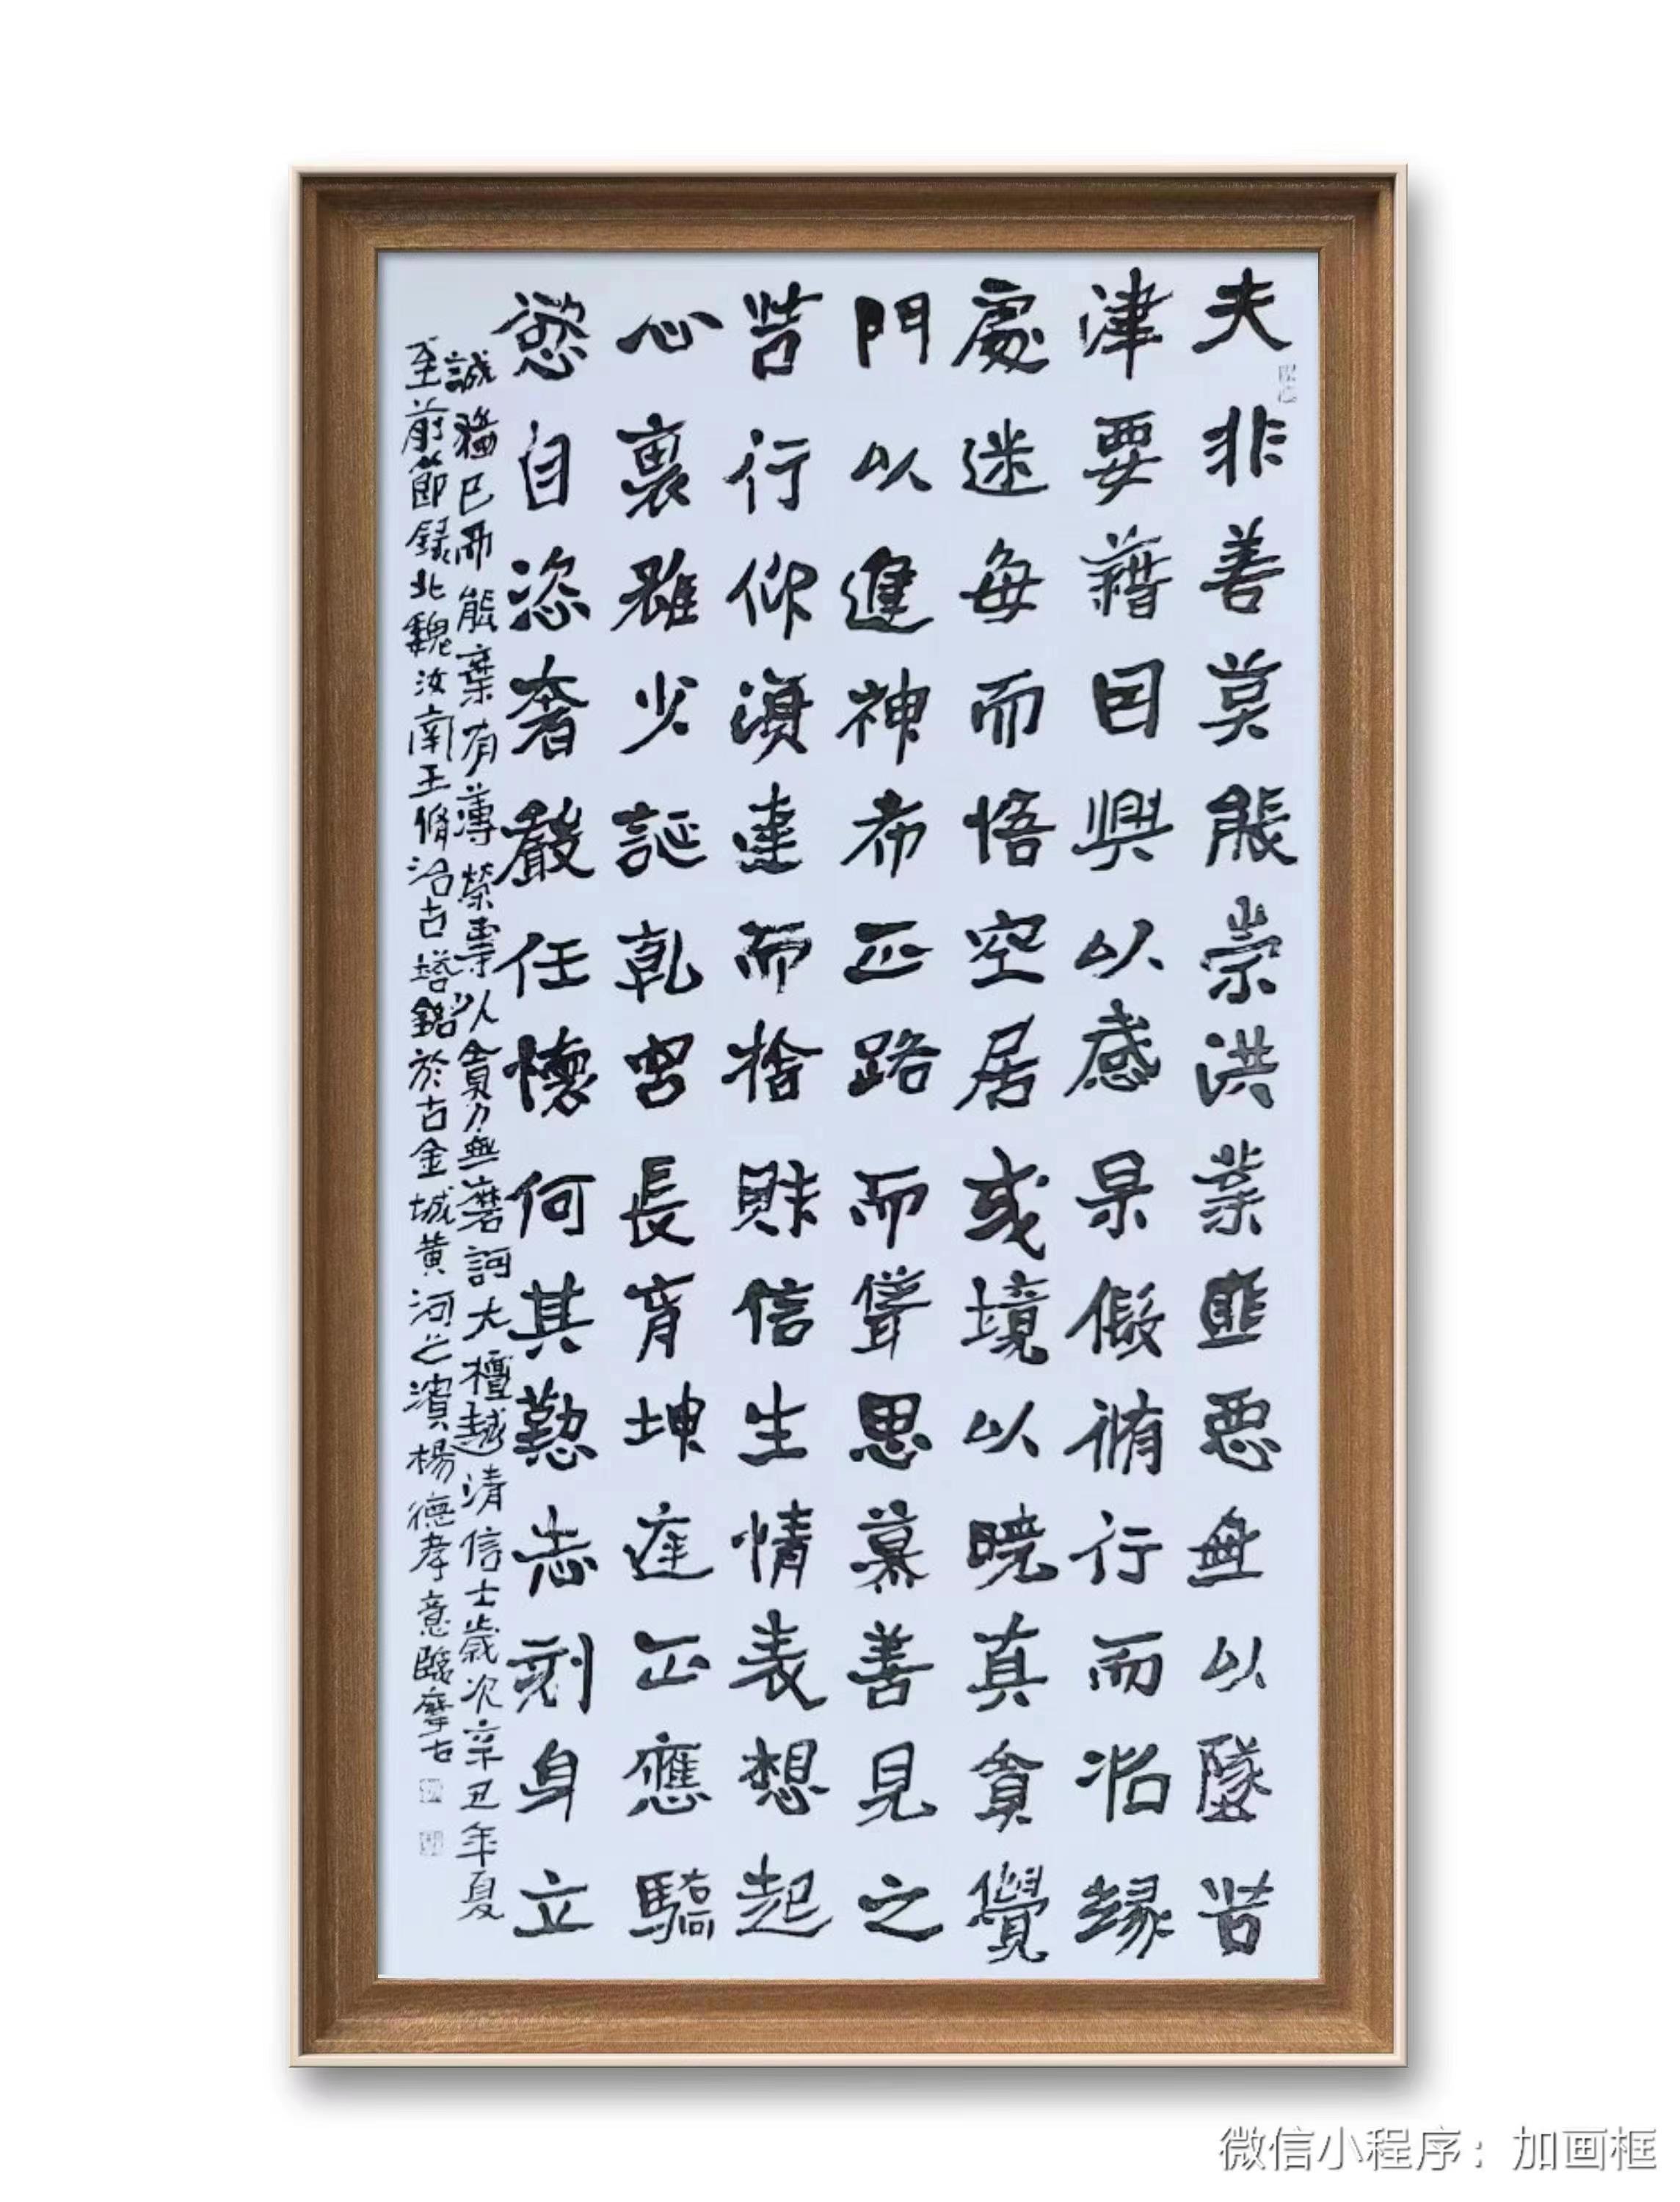 夫非善莫能崇洪業匪惡無以墜苦
津要藉因興以感果假脩行而沿緣
處迷每而悟空居或境以曉真貪覺
門以進神希正路而聳思慕善見之
苦行仰須達而捨財信生情表想起
心裏雖少誕乾宮長育坤庭正應驕
慾自恣奢嚴任懷何其勤志刻身立
誠猶已而能棄有薄榮專以貪力無磨訶大檀越清信士歲次辛丑年夏
至前節録北魏汝南王脩治古塔銘於古金城黄河之濱楊德孝意臨摩古
微信小程序：加画框